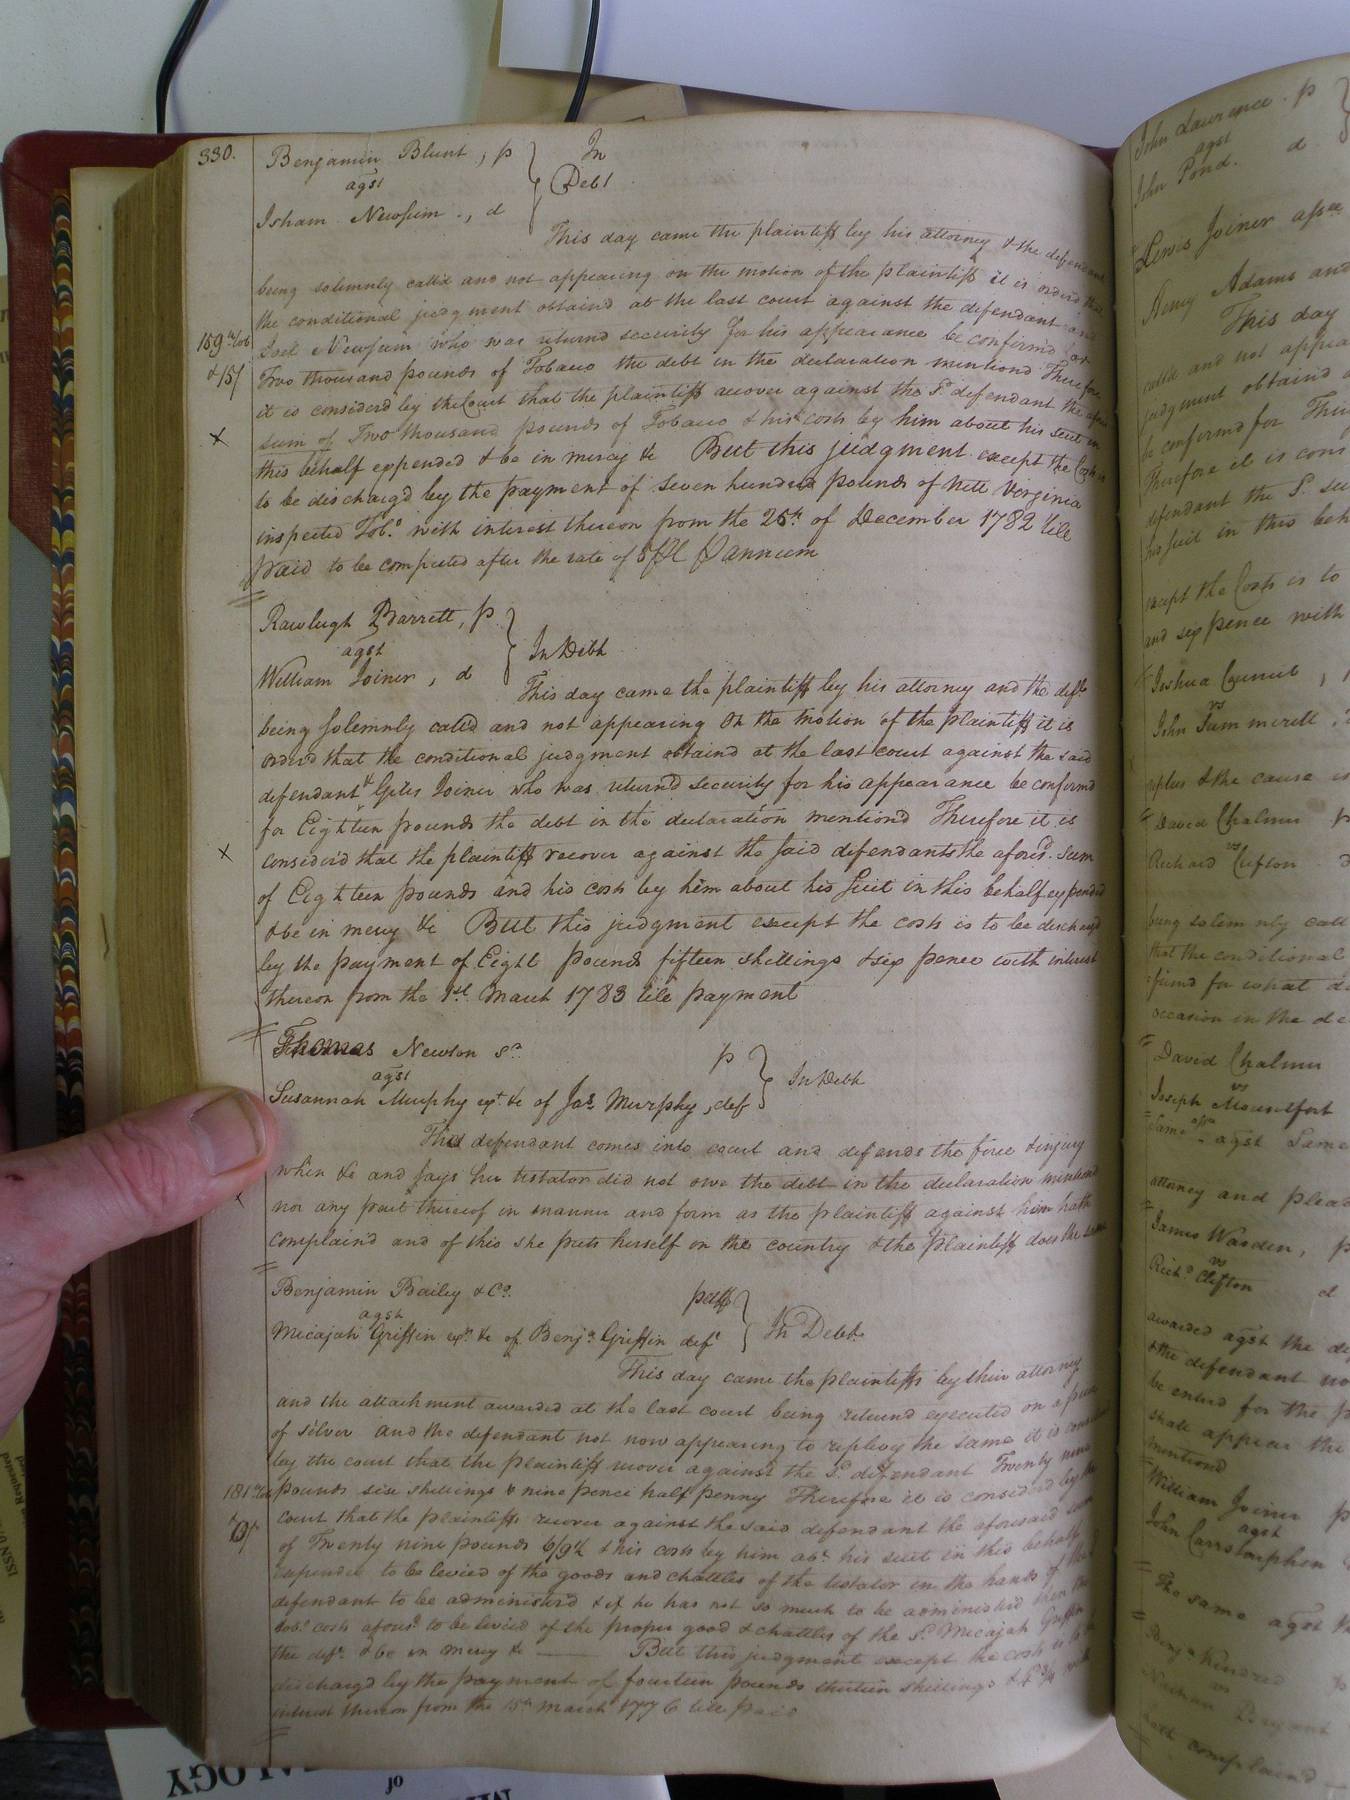 330.
Benjamin Blunt, p
agst
Isham Newsum., d
In
Debt
This day came the plaintiff by his attorney & the defendant
being solemnly calld and not appearing on the motion of the plaintiff it is orderd that
the conditional judgment obtaind at the last court against the defendant and
Joel Newsum who was returnd security for his appearance be confirmd for
159 Tob
& 15/
Two thousand pounds of Tobacco the debt in the declaration mentiond Therefore
it is considerd by the Court that the plaintiff recover against the sd. defendant the afsd
sum of Two thousand pounds of Tobacco & his costs by him about his suit in
this behalf expended & be in mercy &c But this judgment except the Costs is
to be dischargd by the payment of seven hundred pounds of nett Virginia
inspected Tobo. with interest thereon from the 25th. of December 1782 till
paid to be computed after the rate of 5 Ct P annum
Rawleigh Barrett, p.
agst
William Joiner, d
In Debt
This day came the plaintiff by his attorney and the deft.
being solemnly calld and not appearing On the motion of the plaintiff it is
orderd that the conditional judgment obtaind at the last court against the said
defendant & Giles Joiner who was returnd security for his appearance be confirmd
for Eighteen pounds the debt in the declaration mentiond Therefore it is
considerd that the plaintiff recover against the said defendants the aforesd. sum
of Eighteen pounds and his costs by him about his suit in this behalf expended
& be in mercy &c But this judgment except the costs is to be dischargd
by the payment of Eight pounds fifteen shillings & six pence with interest
thereon from the 1st. March 1783 till payment
Thomas Newton sr. p
agst
Susannah Murphy exx. &c of Jas. Murphy, def
In Debt
This defendant comes into court and defends the force & injury
when &c and says her testator did not owe the debt in the declaration mentiond
nor any part thereof in manner and form as the plaintiff against him hath
complaind and of this she puts herself on the country & the plaintiff does the same
Benjamin Bailey & Co. paff
agst
Micajah Griffin exr. &c of Benja. Griffin deft
In Debt.
This day came the plaintiffs by their attorney
and the attachment awarded at the last court being returnd executed on a piece
of silver and the defendant not now appearing to replevy the same it is considerd
by the court that the plaintiff recover against the sd. defendant Twenty nine
181 Tob
pounds six shillings & nine pence half penny Therefore it is considerd by the
court that the plaintiffs recover against the said defendant the aforesaid sum
of Twenty nine pounds 6/9½ & his costs by him abt. his suit in this behalf
expended to be levied of the goods and chattles of the testator in the hands of the
defendant to be administerd & if he has not so much to be administerd then the
costs aforesd. to be levied of the proper good & chattles of the sd. Micajah Griffin
the deft. & be in mercy &c But this judgment except the costs is to be
dischargd by the payment of fourteen pounds thirteen shillings & with
interest thereon from the 15th March 1776 till paid
John Lawrence. p
agst
John Pond. d
Lewis Joiner assee
Henry Adams and
This day
calld and not appea
judgment obtaind a
be confirmd for
Therefore it is cons
defendant the sd. su
his suit in this beh
except the Costs is to
and six pence with
Joshua Councill,
vs
John Summerell,
the cause is
David Chalmers p
vs
Richard Clifton
being solemnly call
that the conditional
for what d
occasion in the de
David Chalmers
vs
Joseph Mountfort
Same agst Same
attorney and plead
James Warden, p
vs
Richd. Clifton d
awarded agst the de
& the defendant no
be enterd for the p
shall appear the
mentiond
William Joiner p
agst
John Carrstarphen
The same agst
Benja Kindred
vs